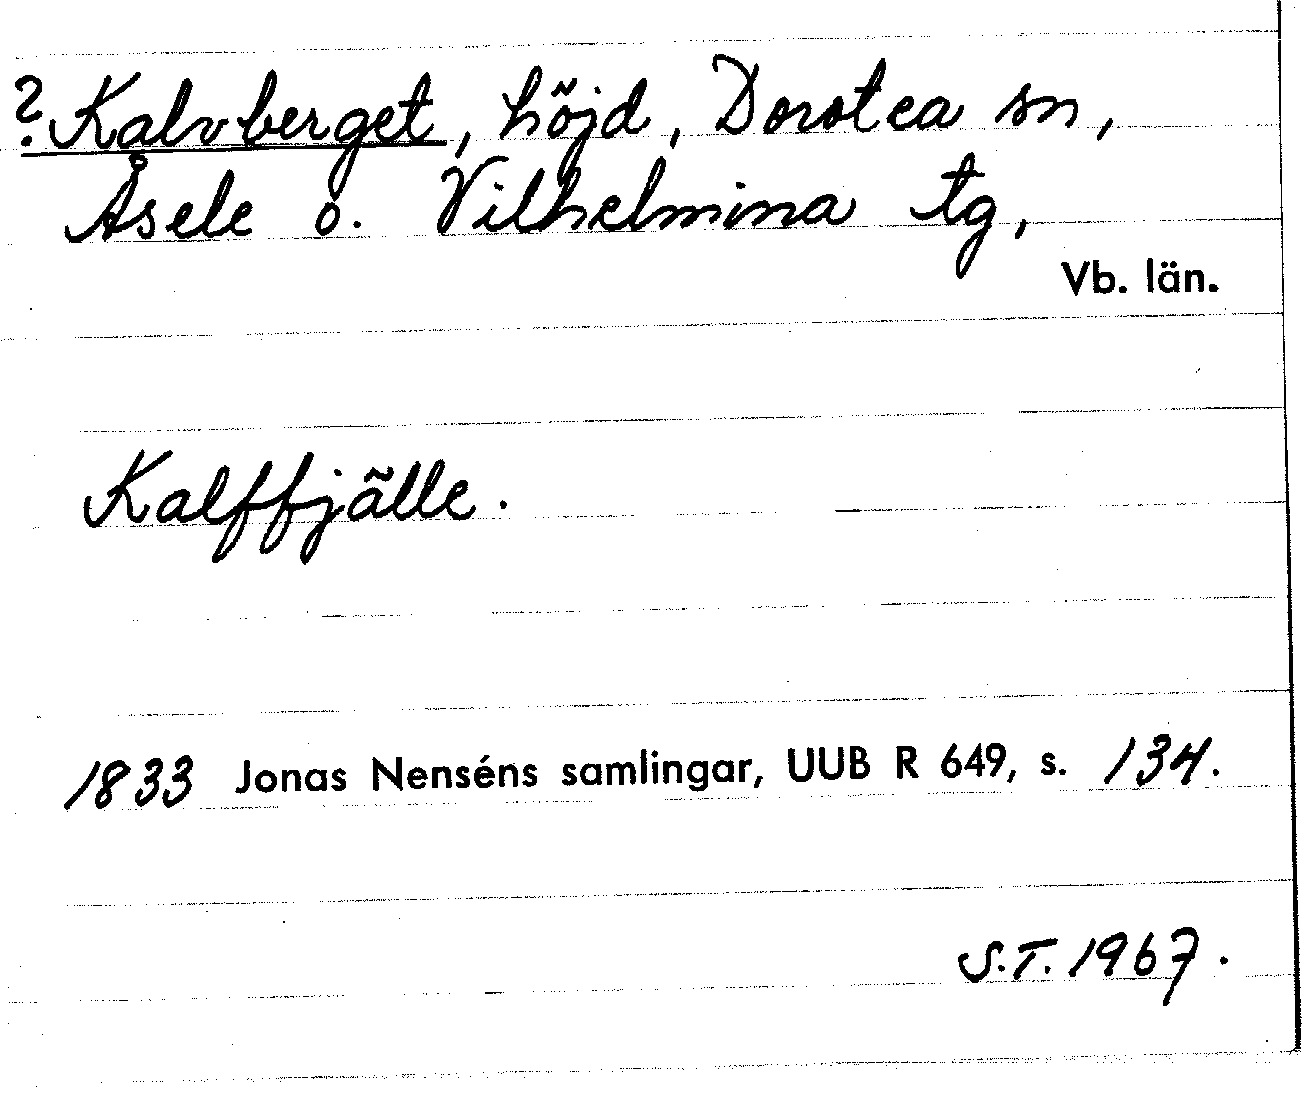 ? Kalvberget, höjd, Dorotea sn,
Åsele o. Vilhelmina tg,
Vb. län.
Kalffjälle.
1833 Jonas Nenséns samlingar, UUB R 649, s. 134.
S.T. 1967.